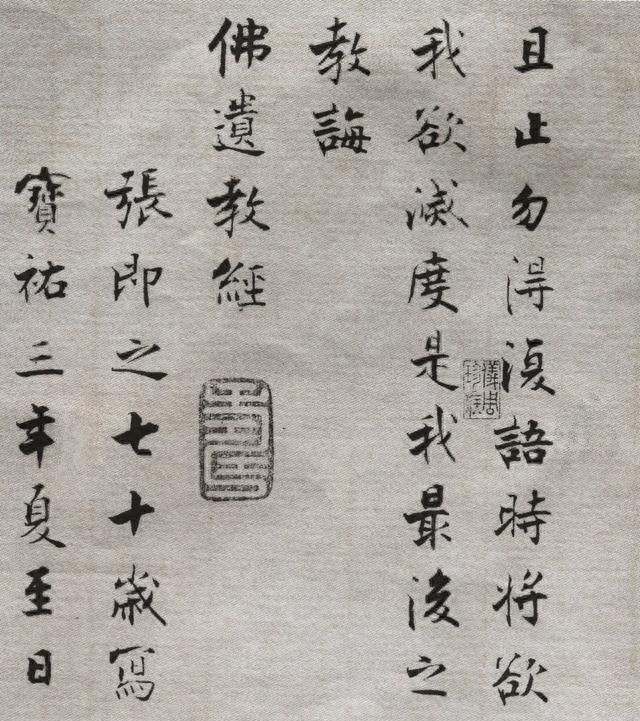 且止勿得復語時将欲
我欲滅度是我最後之
教誨
佛遺教經
張即之七十歲寫
寶祐三年夏至日